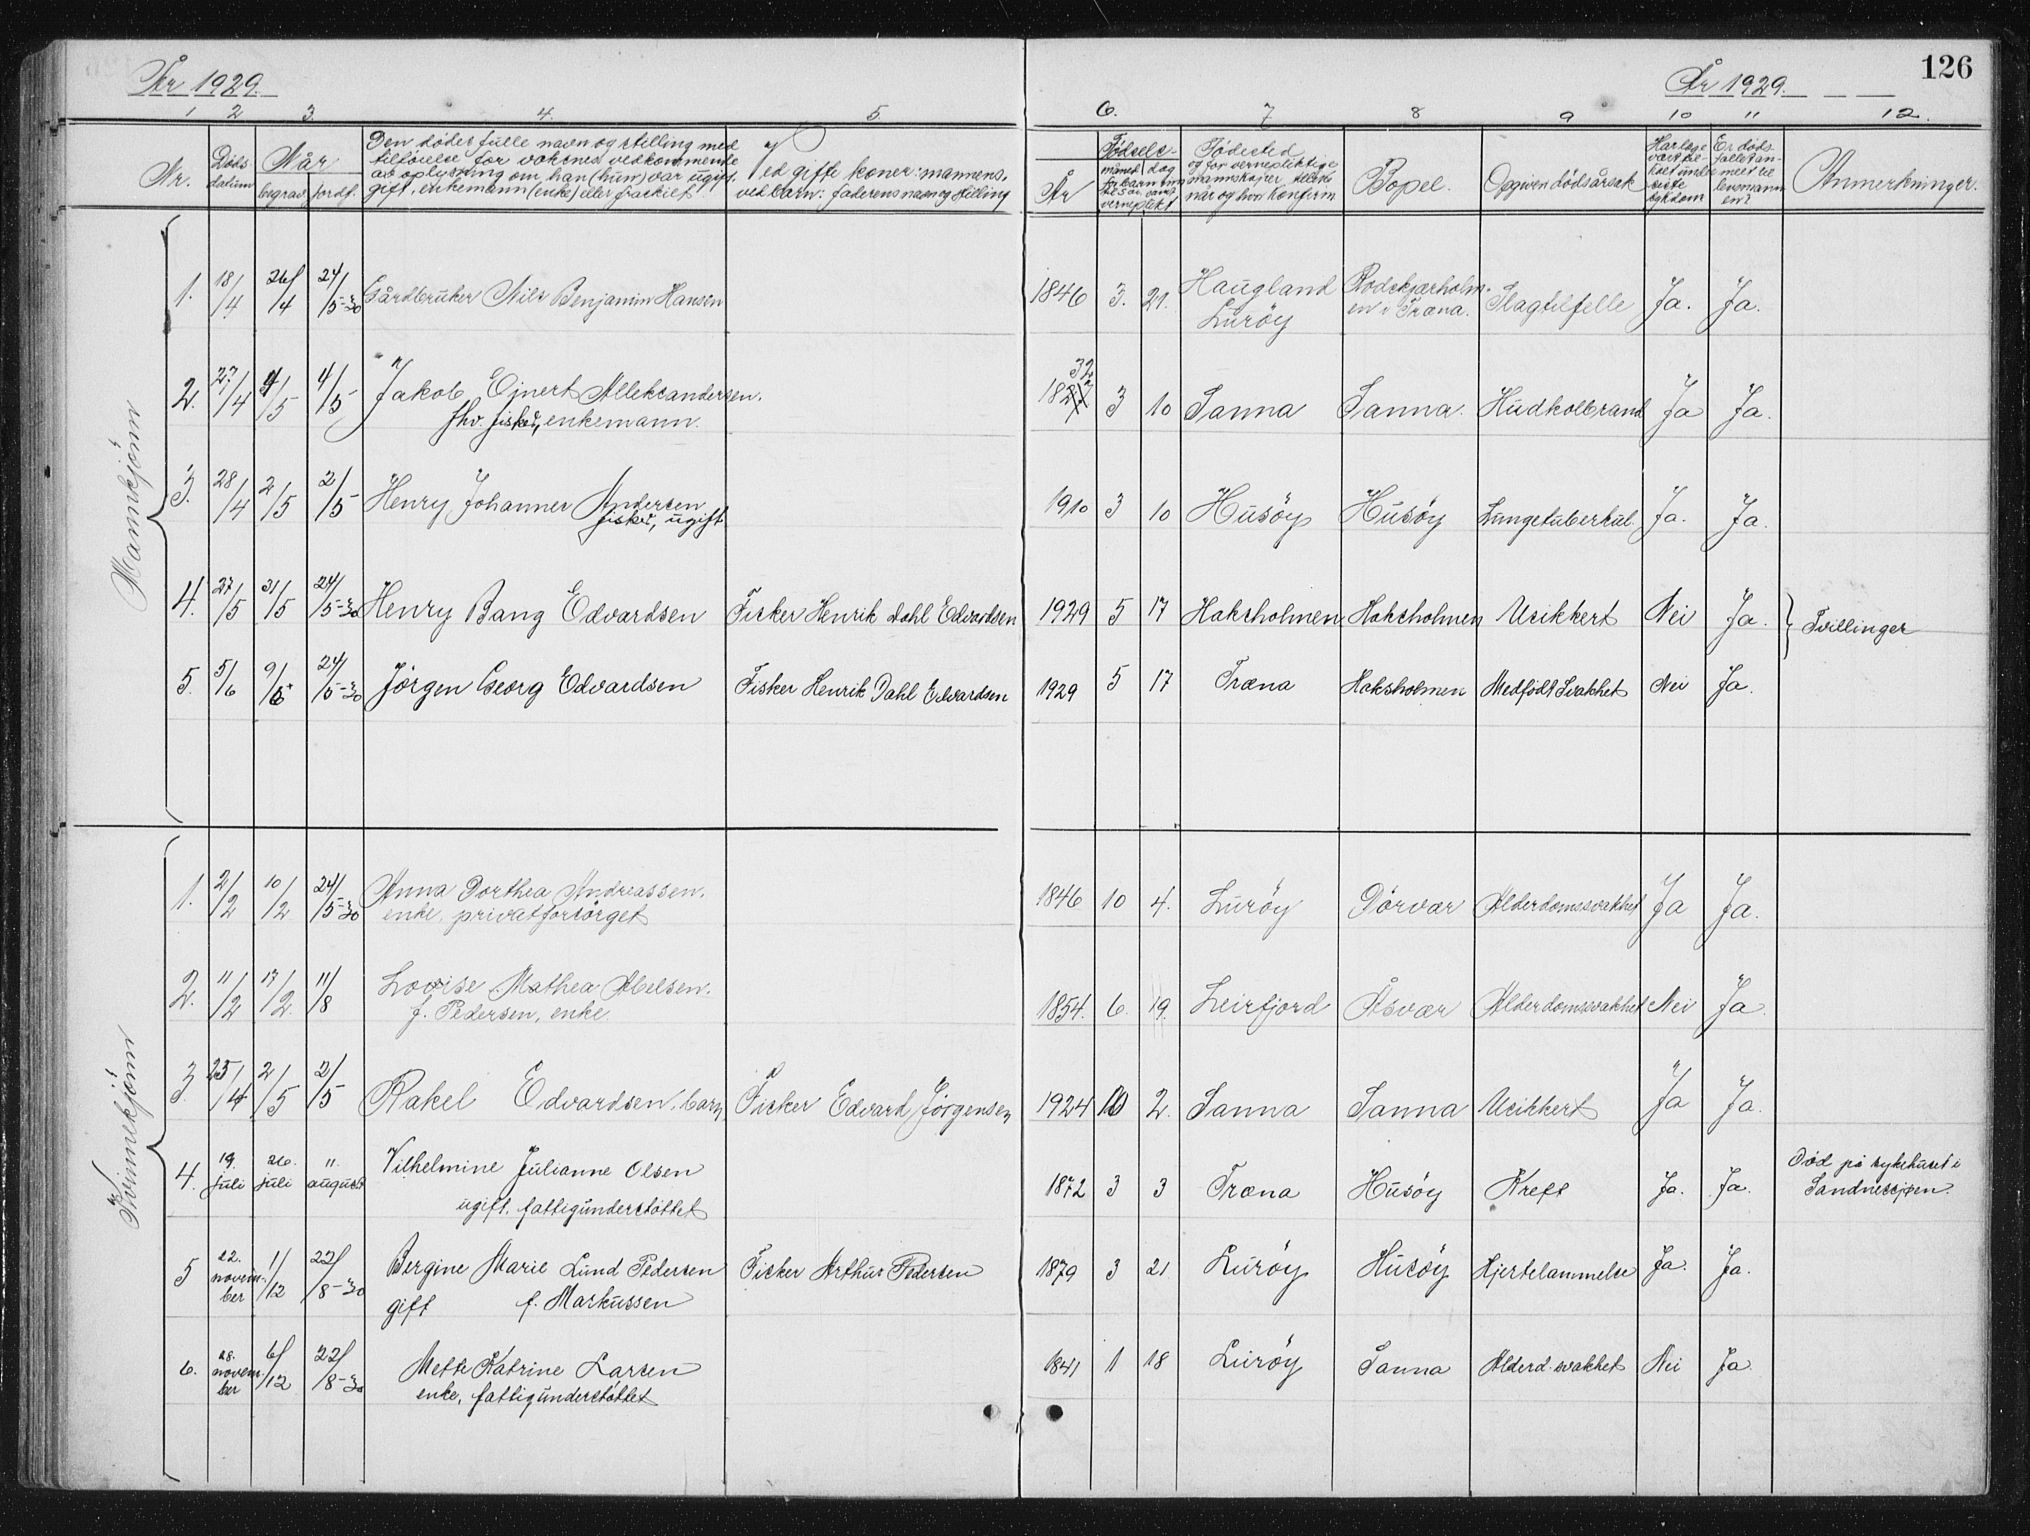 126
År 1929. År 1929.
1 2 3. 4. 5. 6. 7 8 9 10 11 12.
Nr. Døds datum Når begrav. jordf. Den dødes fulle navn og stilling med tilföielse for voksnes vedkommende av oplysning om han (hun) var ugift, gift, enkemann (enke) eller fraskilt Ved gifte koner: mannens, ved barn: faderens navn og stilling
År Fødsels- måned dag Fødested og for vernepliktige mannskaper tillike når og hvor konfirm. Bopel. Opgiven dødsårsak Har læge vært be- nyttet under siste sykdom Er døds- fallet an- meldt til lensmann- en? Anmerkninger.
Mannkjønn
1. 18/4 26/4 24/5-30 Gårdbruker Nils Benjamin Hansen 1846 3. 21. Haugland Lurøy Rødskjærholm- en i Træna. Slagtilfelle Ja. Ja.
2. 27/4 4/5 4/5 Jakob Ejnert Alleksandersen. 1832 3 10 Sanna Sanna. Hudkolbrand Ja Ja.
fhv. fisker, enkemann.
3. 28/4 2/5 2/5 Henry Johannes Andersen 1910 3 10 Husöy Husöy Lungetuberkul. Ja. Ja.
fisker, ugift
4. 27/5 31/5 24/5-30 Henry Bang Edvardsen Fisker Henrik Dahl Edvardsen 1929 5 17 Haksholmen Haksholmen Usikkert Nei Ja. Tvillinger
5. 5/6 9/6 24/5-30 Jörgen Georg Edvardsen Fisker Henrik Dahl Edvardsen 1929 5 17 Træna Haksholmen Medfødt Svakhet Nei Ja.
Kvinnekjønn
1. 2/2 10/2 24/5-30 Anna Dorthea Andreassen. 1846 10 4. Lurøy Dörvær Alderdomssvakhet Ja Ja.
enke, privatforsörget
2. 11/2 17/2. 11/8 Lovise Mathea Abelsen. 1854. 6. 19. Leirfjord Åsvær Alderdomssvakhet Nei Ja.
f. Pedersen, enke.
3. 25/4 2/5 2/5 Rakel Edvardsen, barn Fisker Edvard Jørgensen 1924 10 2. Sanna Sanna Usikkert Ja Ja.
4. 19. juli 26. juli 11. august Vilhelmine Julianne Olsen 1872 3 3 Træna Husöy Kreft Ja. Ja. Død på sykehuset i
ugift. fattigunderstöttet Sandnessjøen.
5 22. novem- ber 1/12 22/8-30 Bergine Marie Lund Pedersen Fisker Arthur Pedersen 1879 3 21 Luröy Husöy Hjertelammelse Ja. Ja.
gift f. Markussen
6. 28. novem- ber 6/12 22/8-30 Mette Katrine Larsen 1841 1 18 Luröy Sanna Alderd. svakhet Nei Ja
enke, fattigunderstöttet